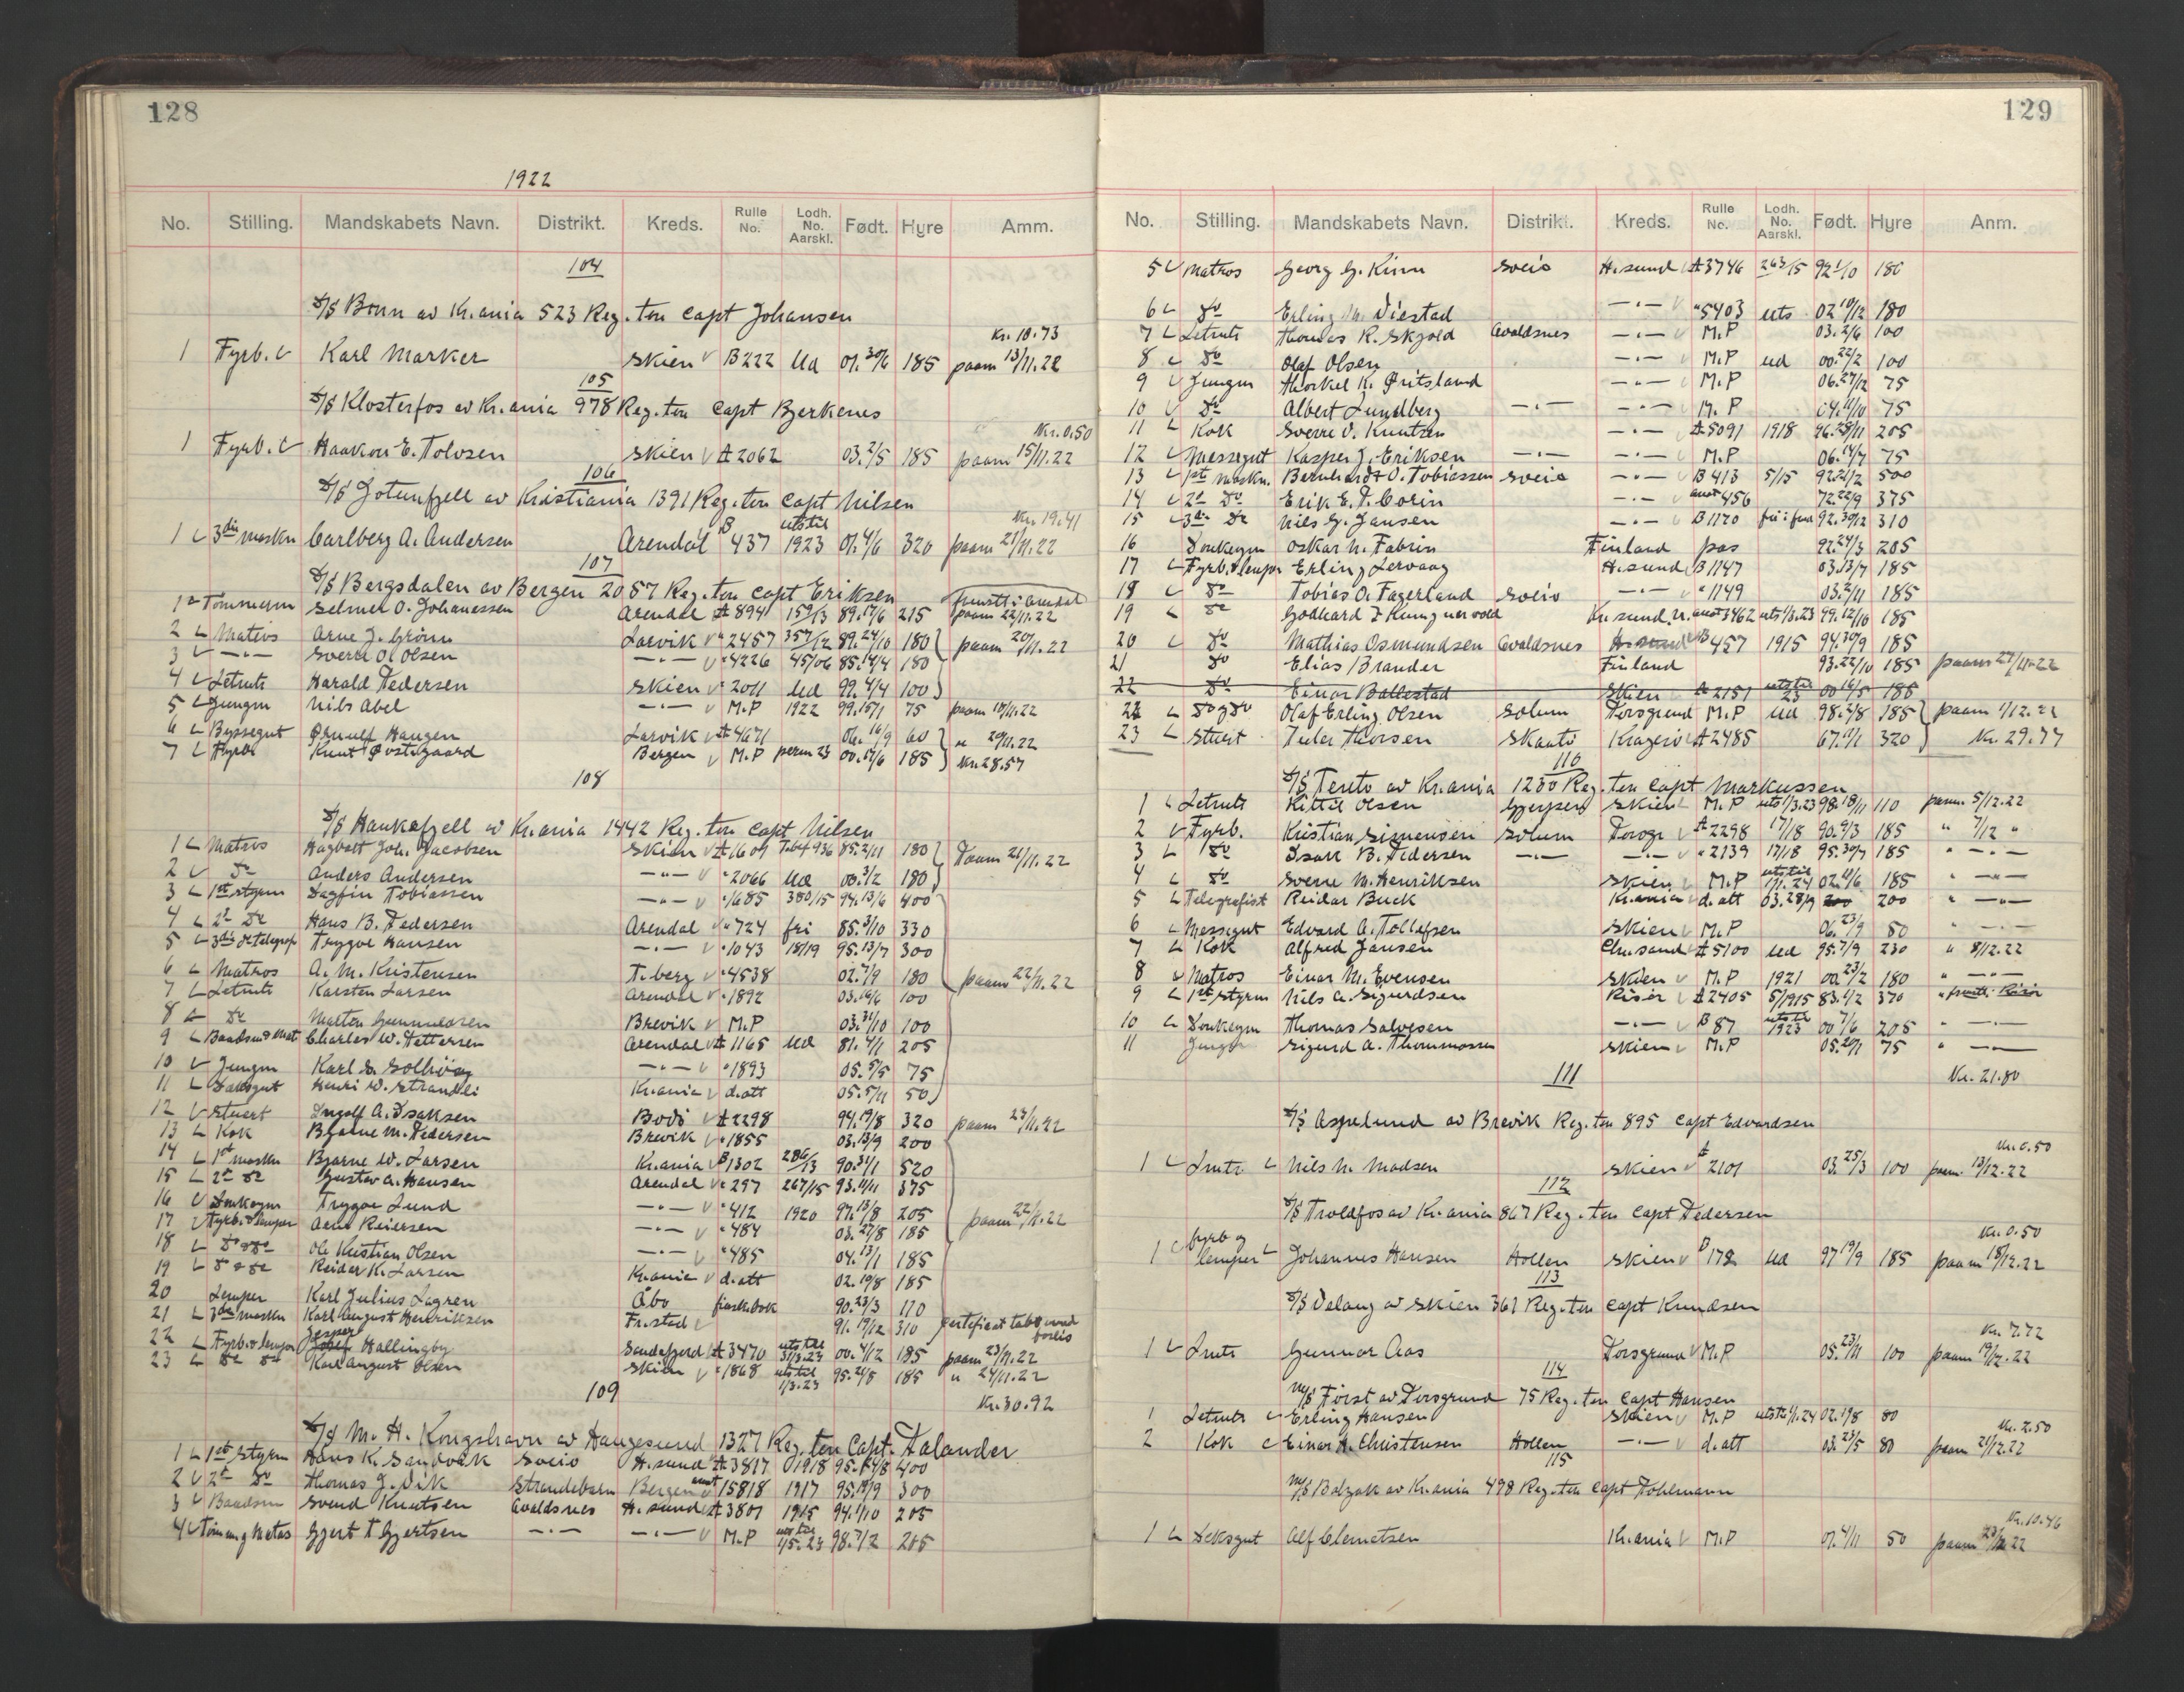 128
1922
No. Stilling. Mandskabets Navn. Distrikt. Kreds. Rulle No. Lodh. No. Aarskl. Født. Hyre Amm.
104
D/S Bonn av Kr.ania 523 Reg. ton Capt Johansen
Kr. 10.73
1 Fyrb. Karl Marker Skien B222 Ud 01.30/6 185 paam 13/11.22
105
D/S Klosterfos av Kr.ania 978 Reg. ton Capt Bjerkenes
Kr. 0.50
1 Fyrb. Haakon E. Tolvsen Skien A 2062 03.2/5 185 paam 15/11.22
106
D/S Jotunfjell av Kristiania 1391 Reg. ton Capt Nilsen
Kr. 19.41
1 3die maskn Carlberg A. Andersen Arendal B 437 uts til 1923 01.4/6 320 paam 21/11.22
107
D/S Bergsdalen av Bergen 2057 Reg. ton Capt Eriksen
1 Tømmerm Selmer O. Johanessen Arendal A 894 159/13 89.17/6 215 paam 22/11.22
2 Matros Arne J. Grönn Larvik " 2457 357/12 89.24/10 180 paam 20/11.22
3 —"— Sverre O. Olsen —"— " 4226 45/06 85.14/4 180
4 Letmtr Harald Pedersen Skien " 2011 Ud 99.4/4 100
5 Jungm Nils Abel —"— M.P 1922 99.15/1 75 paam 18/11.22
6 Byssegut Ørnulf Haugen Larvik A 4671 06.16/9 60 " 20/11.22
7 Fyrb. Knut Østegaard Bergen M.P perm 23 00.17/6 185 Kr. 28.57
108
D/S Haukefjell av Kr.ania 1442 Reg. ton Capt Nilsen
1 Matros Hagbart Joh. Jacobsen Skien A 1601 85.2/11 180 Paam 21/11.22
2 Do Anders Andersen —"— " 2066 Ud 00.3/2 180
3 1st styrm Dagfin Tobiassen —"— " 1685 380/15 94.13/6 400
4 2n Do Hans B. Pedersen Arendal " 724 fri 85.3/10 330
5 3die & telegraf Trygve Hansen —"— " 1043 18/19 95.13/7 300
6 Matros A. M. Kristensen T.berg " 4538 02.7/9 180 paam 22/11.22
7 Letmtr Karsten Larsen Arendal " 1892 03.10/6 100
8 Do Morten Gunnulfsen Brevik M.P 03.31/10 100
9 Baadsm & Mat Charles W. Pettersen Arendal A 1165 Ud 81.4/1 205
10 Jungm Karl S. Solhöy —"— " 1893 05.5/5 75
11 Daksgut Henri W. Strandli Kr.ania d.att 05.5/11 50
12 Stuert Ingolf A. Isaksen Bodö A 2298 94.19/8 320 paam 23/11.22
13 Kok Bjarne M. Pedersen Brevik " 1855 03.13/9 200
14 1st maskn Bjarne W. Larsen Kr.ania B 1302 286/13 90.31/1 520
15 2n Do Gustav A. Hansen Arendal " 297 267/15 93.11/11 375
16 Donkeym Trygve Lund —"— " 412 1920 97.13/8 205 paam 22/11.22
17 Fyrb. & lemper Arne Reiersen —"— " 484 03.27/8 185
18 Do & Do Ole Kristian Olsen —"— " 485 04.13/1 185
19 Do & Do Reidar K. Larsen Kr.ania d.att 02.19/8 185
20 Lemper Karl Julius Lagren Åbo finsk.bok 90.23/3 170
21 3die maskn Karl August Henriksen Fr.stad 91.19/12 310 certificat tabt ved forlis
22 Fyrb. & lemper Jesper Hallingby Sandefjord A 3470 uts til 31/3.23 00.4/12 185 paam 23/11.22
23 Do Do Karl August Olsen Skien " 1868 uts til 1/3.23 95.21/8 185 " 24/11.22
109
Kr. 30.92
D/S M. H. Kongshavn av Haugesund 1327 Reg. ton Capt. Falander
1 1st styrm Hans K. Sandvæk Sveio H.sund A 3817 1918 95.14/8 400
2 2n Do Thomas J. Vik Strandebarm Bergen 15818 1917 95.19/9 300
3 Baadsm Svend Knutsen Avaldsnes H.sund A 3801 1915 94.1/10 205
4 Tömm og Matros Gjert T Gjertsen —"— —"— M.P uts til 1/5.23 98.7/2 205
129
No. Stilling. Mandskabets Navn. Distrikt. Kreds. Rulle No. Lodh. No. Aarskl. Født. Hyre Anm.
5 Matros Georg G. Kinn Sveio H.sund A 3746 263/15 92 1/10 180
6 Do Erling M. Viestad —"— " 5403 uts 02 10/12 180
7 Letmtr Thomas R. Skjold Avaldsnes —"— M.P 03.2/6 100
8 Do Olaf Olsen —"— M.P ud 00.22/2 100
9 Jungm Thorkel K. Öritsland —"— M.P 06.27/12 75
10 Do Albert Lundberg —"— —"— M.P 04.11/10 75
11 Kok Sverre O. Knutsen —"— A 5091 1918 96.28/11 205
12 Messegut Kasper J. Eriksen —"— —"— M.P 06.14/7 75
13 1st maskn. Bernhardt O. Tobiassen Sveio —"— B 413 5/15 92.21/2 500
14 2n Do Erik E. T. Corin —"— 456 72.22/9 375
15 3die Do Nils G. Jansen —"— B 1170 92.30/12 310
16 Donkeym Oskar N. Fabrin Finland pas 92.24/3 205
17 Fyrb. & lemper Erling Lervaag H.sund B 1147 03.13/7 185
18 Do Tobias O. Fagerland Sveio —"— " 1149 03.2/11 185
19 Do Godhard F Kungnervold Kr.sund.N. 3462 uts 1/8.23 99.12/10 185
20 Do Mathias Osmundsen Avaldsnes H.sund B 457 1915 94.30/9 185
21 Do Elias Brander Finland 93.22/10 185 paam 27/11.22
22 Do Einar Ballestad Skien A 2151 uts til 23 00 16/5 185
22 Do og Do Olaf Erling Olsen Solum Porsgrund M.P Ud 98.2/8 185 paam 1/12.22
23 Stuert Peder Thorsen Skaatö Kragerö A 2485 67.11/1 320 Kr. 29.77
110
D/S Tento av Kr.ania 1230 Reg. ton Capt Markussen
1 Letmtr Kittil Olsen Gjerpen Skien M.P uts 1/3.23 98.18/11 110 paam 5/12.22
2 Fyrb. Kristian Simensen Solum Porsgr A 2298 17/18 90.9/3 185 " 7/12 "
3 Do Isak B. Pedersen —"— —"— " 2139 17/18 95.30/7 185 " —"—
4 Do Sverre M. Henriksen Skien M.P uts til 1/1.24 02.11/6 185 " —"—
5 Telegrafist Reidar Buck Kr.ania d.att 03.28/9 200 " —"—
6 Messegut Edvard A. Tollefsen Skien M.P 06.23/9 50 " —"—
7 Kok Alfred Jansen Chr.sand A 5100 Ud 95.7/9 230 " 8/12.22
8 Matros Einar M. Evensen Skien M.P 1921 00.23/2 180 " —"—
9 1st styrm Nils A. Sigurdsen Risör A 2405 5/1915 83.1/2 370
10 Donkeym Thomas Salvesen —"— B 87 uts til 1923 00 7/6 205 " —"—
11 Jungm Sigurd A. Thommassen Skien M.P 05.20/1 75 " —"—
111
Kr. 21.80
D/S Aspelund av Brevik Reg. ton 895 Capt Edvardsen
Kr. 0.50
1 Lmtr Nils M. Madsen Skien A 2101 03.25/3 100 paam. 13/12.22
112
D/S Troldfos av Kr.ania 867 Reg. ton Capt Pedersen
Kr. 0.50
1 Fyrb og lemper Johannes Hansen Hollen Skien B 172 Ud 97 19/9 185 paam 18/12.22
113
D/S Velaug av Skien 361 Reg. ton Capt Knudsen
Kr. 7.72
1 Lmtr Gunnar Aas Porsgrund M.P 05.23/11 100 paam 19/12.22
114
M/S Först av Porsgrund 75 Reg. ton Capt Hansen
1 Letmtr Erling Hansen Skien M.P uts til 1/1.24 02.19/8 80
Kr. 2.50
2 Kok Einar H. Christensen Hollen —"— d.att 03.23/5 80 paam 21/12.22
115
M/S Balzak av Kr.ania 498 Reg. ton Capt Pohlmann
Kr. 10.46
1 Deksgut Alf Clemetsen Kr.ania M.P 07.4/11 50 paam 23/12 22